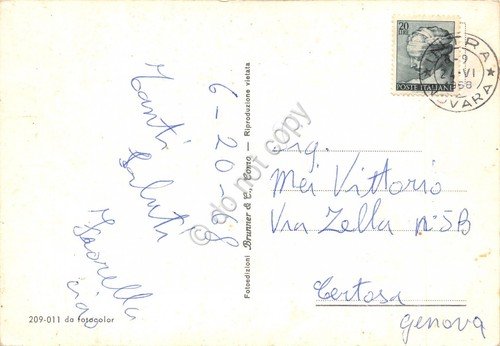 6-20-68
Tanti
Saluti
ciao
Fotoedizioni Brunner & C., Como - Riproduzione vietata
209-011 da fotocolor
20
LIRE
POSTE ITALIANE
INTRA
-9
24·VI
1968
NOVARA
Sig.
Mei Vittorio
Via Zella n°5B
Certosa
Genova
do not copy